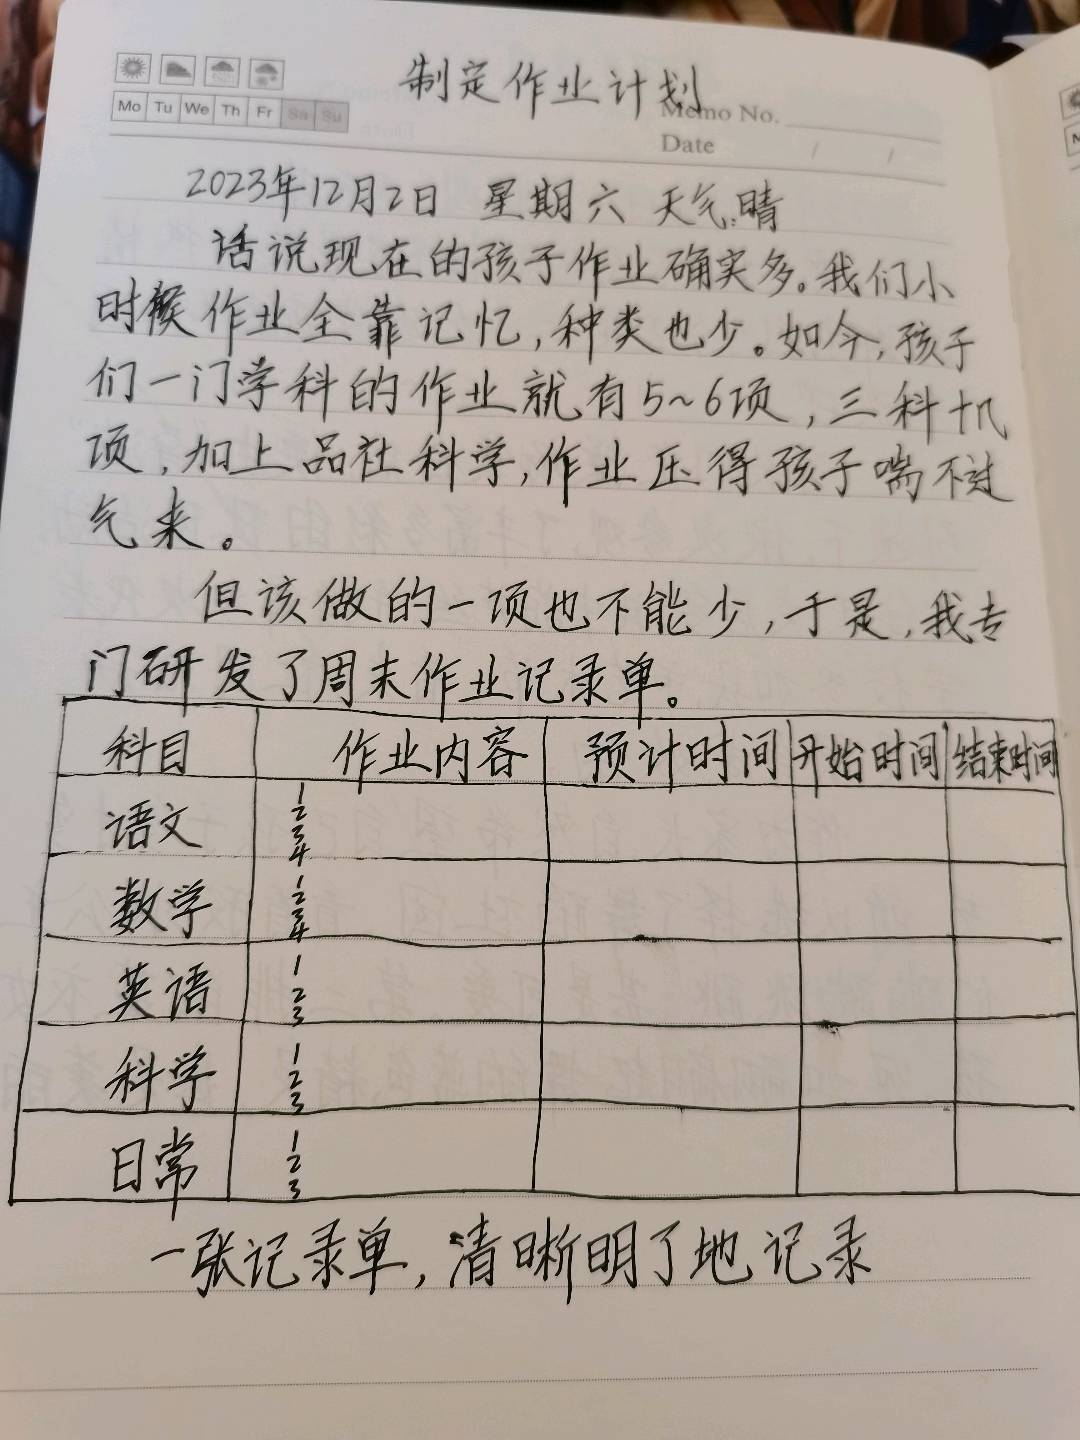 制定作业计划
Mo Tu We Th Fr Sa Su
Memo No.
Date / /
2023年12月2日 星期六 天气:晴
话说现在的孩子作业确实多。我们小
时候作业全靠记忆,种类也少。如今,孩子
们一门学科的作业就有5~6项,三科十几
项,加上品社科学,作业压得孩子喘不过
气来。
但该做的一项也不能少,于是,我专
门研发了周末作业记录单。
科目 作业内容 预计时间 开始时间 结束时间
语文 1 2 3 4
数学 1 2 3 4
英语 1 2 3
科学 1 2 3
日常 1 2 3
一张记录单,清晰明了地记录